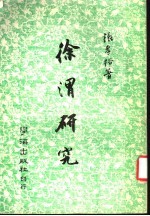 張孝裕著
徐渭研究
學海出版社印行